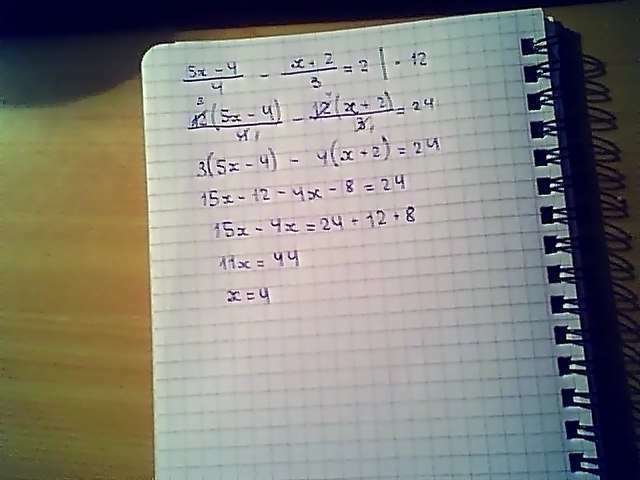 (5x - 4)/4 - (x + 2)/3 = 2 | · 12
12(5x - 4)/4 - 12(x + 2)/3 = 24
3(5x - 4) - 4(x + 2) = 24
15x - 12 - 4x - 8 = 24
15x - 4x = 24 + 12 + 8
11x = 44
x = 4